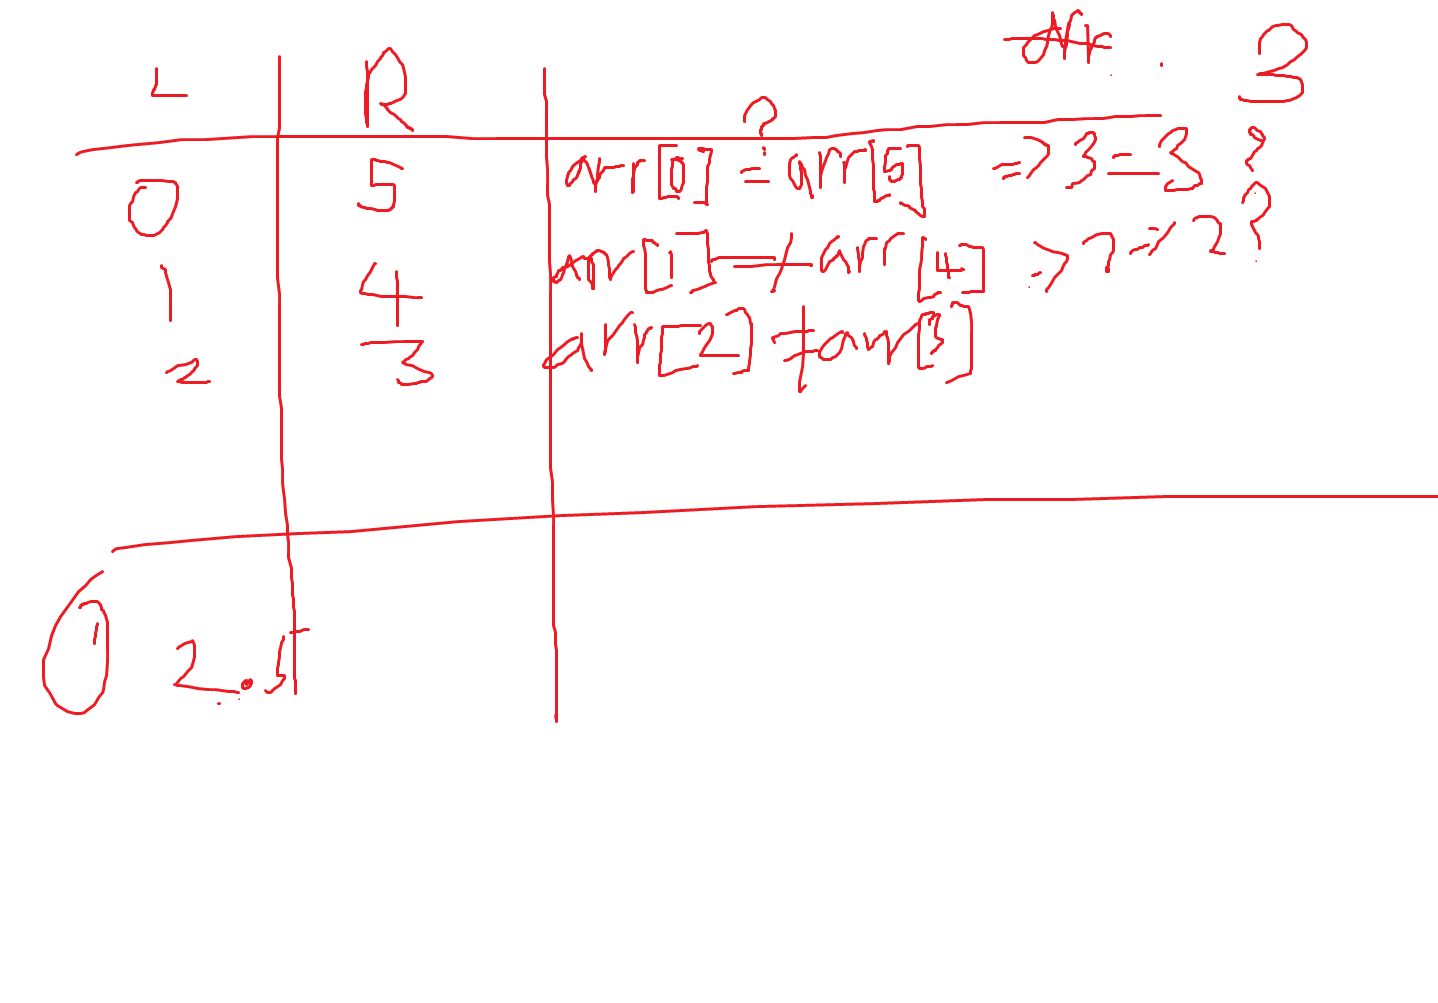 3
L R
0 5 arr[0] = arr[5] => 3 = 3 ?
?
1 4 arr[1] ≠ arr[4] => 7 => 2 ?
2 3 arr[2] ≠ arr[3]
2.5